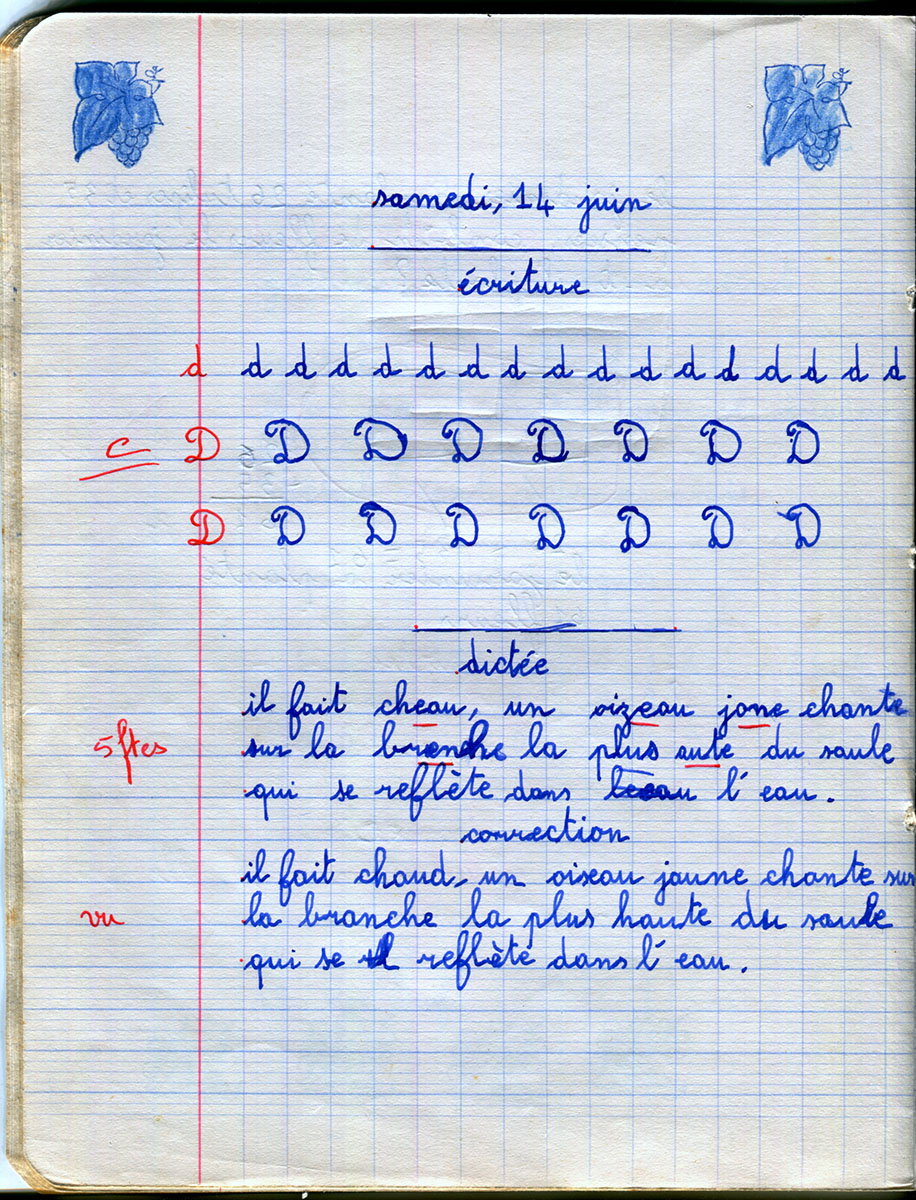 samedi, 14 juin
écriture
d d d d d d d d d d d d d d d d d
C D D D D D D D D
D D D D D D D D
dictée
il fait cheau, un oizeau jone chante
5 ftes sur la brenche la plus aute du saule
qui se reflète dans leeau l'eau.
correction
il fait chaud, un oiseau jaune chante sur
vu la branche la plus haute du saule
qui se reflète dans l'eau.